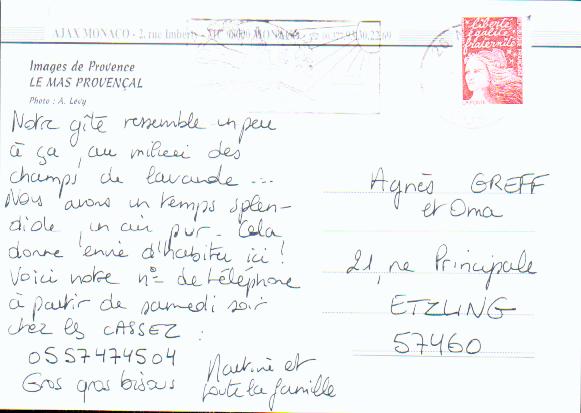 AJAX MONACO - 2, rue Imberty
Images de Provence
LE MAS PROVENÇAL
Photo : A. Lévy
liberté
égalité
fraternité
Notre gîte ressemble un peu
à ça, au milieu des
champs de lavande ...
Nous avons un temps splen-
dide, un air pur. Cela
donne envie d'habiter ici !
Voici notre n° de téléphone
à partir de samedi soir
chez les CASSEZ :
0557474504
Gros gros bisous
Martine et
toute la famille
Agnès GREFF
et Oma
21, rue Principale
ETZLING
57460